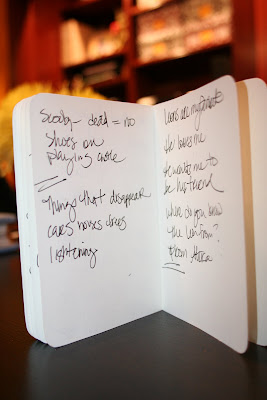 dead = no
shoes on
playing castle
Things that disappear
cars noises
lightening
Lions are my favorite
He loves me
He wants me to
be his friend
where do you know
the lion from?
From Africa